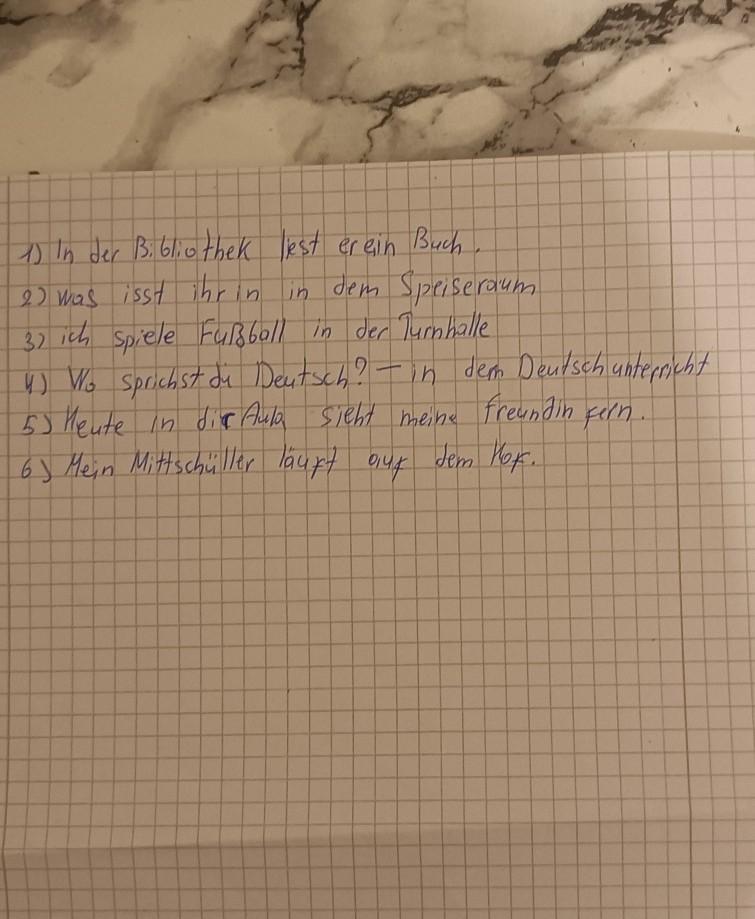 1) In der Bibliothek liest er ein Buch.
2) Was isst ihr in in dem Speiseraum
3) ich spiele Fußball in der Turnhalle
4) Wo sprichst du Deutsch? - in dem Deutschunterricht
5) Heute in der Aula sieht meine freundin fern.
6) Mein Mittschüller läuft auf dem Hof.